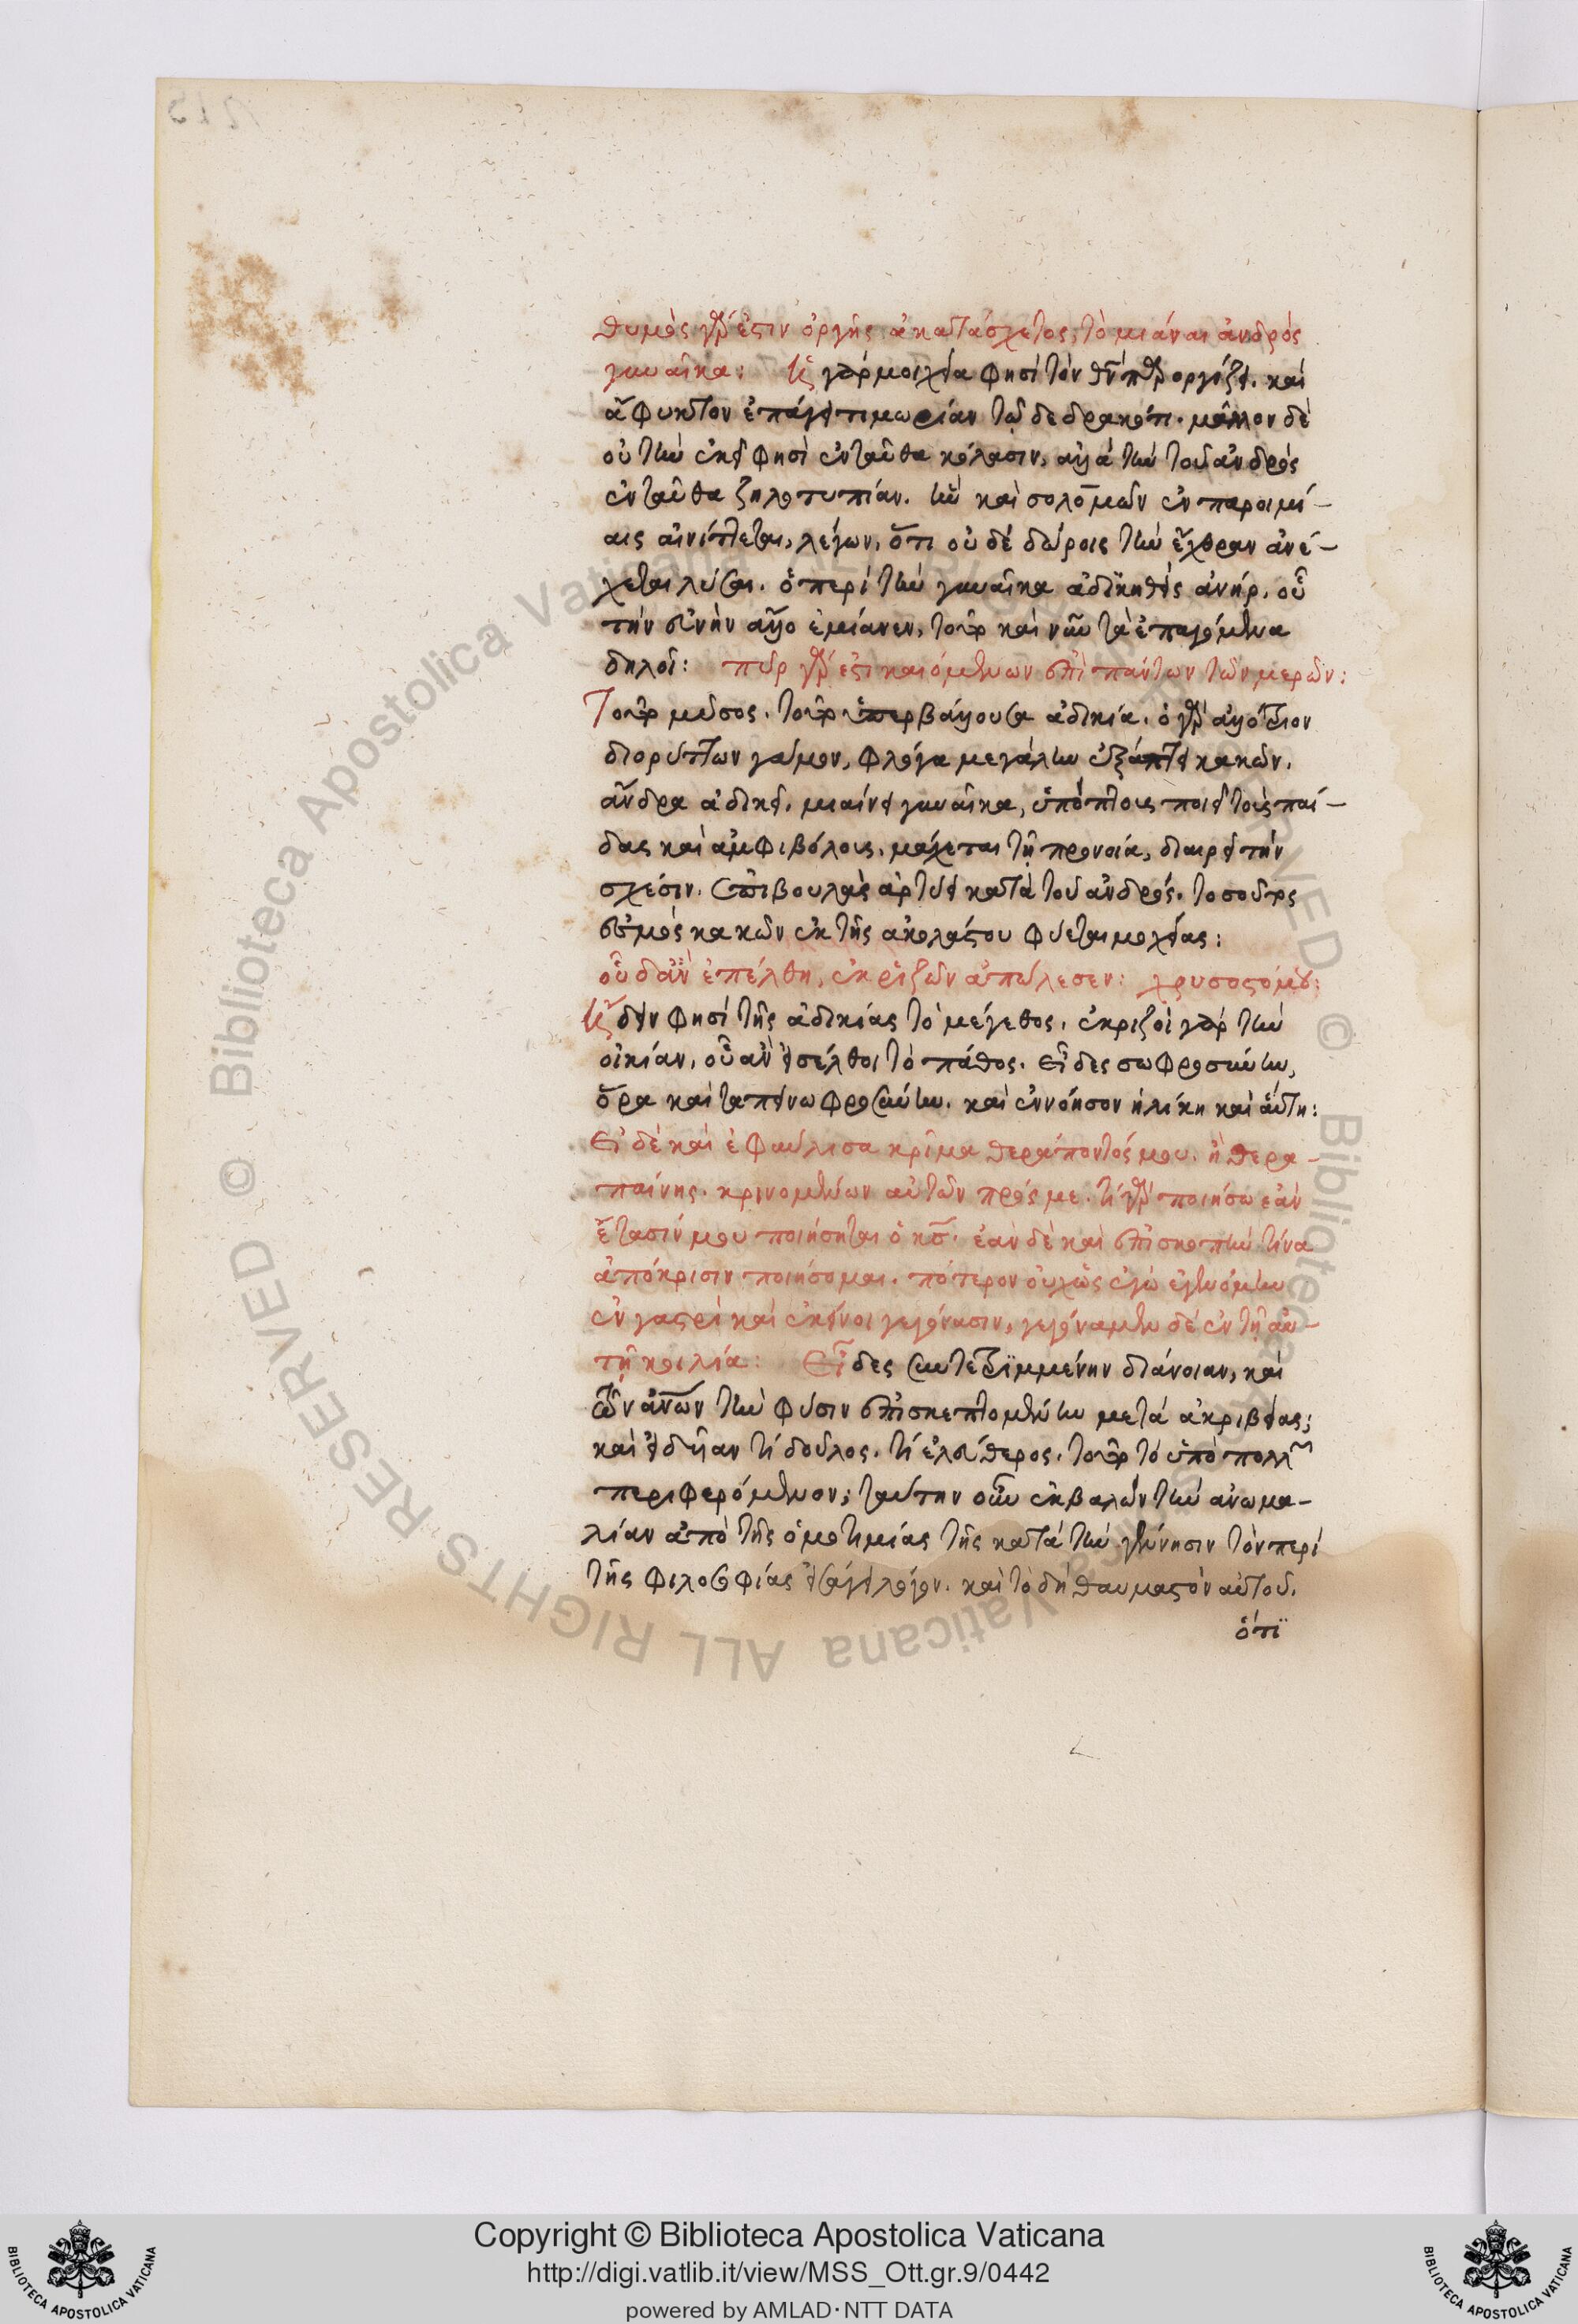 θυμὸς γὰρ ἐστιν ὀργῆς ἀκατάσχετος, τὸ μιάναι ἀνδρὸς
γυναῖκα: ἡ γὰρ μοιχεία φησὶ τὸν θν̅ παροργίζει. καὶ
ἄφυκτον ἐπάγει τιμωρίαν τῷ δεδρακότι. μᾶλλον δὲ
οὐ τὴν ἐκεῖ φησὶ ἐνταῦθα κόλασιν, ἀλλὰ τὴν τοῦ ἀνδρὸς
ἐνταῦθα ζηλοτυπίαν. ἣν καὶ σολομῶν ἐν παροιμί-
αις αἰνίττεται, λέγων, ὅτι οὐδὲ δώροις τὴν ἔχθραν ἀνέ-
χεται λῦσαι. ὁ περὶ τὴν γυναῖκα ἀδικηθεὶς ἀνήρ. οὗ
τὴν εὐνὴν ἄλλο ἐμίανεν, τοῦτο καὶ νῦν τὰ ἐπαγόμενα
δηλοῖ: πῦρ γάρ ἐστι καιόμενον ἐπὶ πάντων τῶν μερῶν:
Τοῦτο μῦσος. τοῦτο ὑπερβάλλουσα ἀδικία. ὁ γὰρ ἀλλότριον
διορύττων γάμον, φλόγα μεγάλην ἐξάπτει κακῶν.
ἄνδρα ἀδικεῖ. μιαίνει γυναῖκα, ὑπόπτους ποιεῖ τοὺς παῖ-
δας καὶ ἀμφιβόλους. μάχεται τῇ προνοίᾳ, διαιρεῖ τὴν
σχέσιν. ἐπιβουλὰς ἀρτύει κατὰ τοῦ ἀνδρός. τοσοῦτος
ἐσμὸς κακῶν ἐκ τῆς ἀκολάστου φύεται μοιχείας:
οὗ δ' ἂν ἐπέλθη, ἐκ ῥιζῶν ἀπώλεσεν: χρυσοστόμου:
Εἶδεν φησὶ τῆς ἀδικίας τὸ μέγεθος. ἐκριζοῖ γὰρ τὴν
οἰκίαν, οὗ ἂν εἰσέλθοι τὸ πάθος. Εἶδες σωφροσύνην,
ὅρα καὶ ταπεινωφροσύνην. καὶ ἐννόησον ἡλίκη καὶ αὕτη:
Εἰ δὲ καὶ ἐφαύλισα κρῖμα θεράποντός μου. ἢ θερα-
παίνης. κρινομένων αὐτῶν πρός με. τί γὰρ ποιήσω ἐὰν
ἔτασίν μου ποιήσηται ὁ κς̅. ἐὰν δὲ καὶ ἐπισκοπὴν τίνα
ἀπόκρισιν ποιήσομαι. πότερον οὐχ ὡς ἐγὼ ἐγενόμην
ἐν γαστρὶ καὶ ἐκεῖνοι γεγόνασιν, γεγόναμεν δὲ ἐν τῇ αὐ-
τῇ κοιλίᾳ: Εἶδες συντετριμμένην διάνοιαν, καὶ
τῶν ἀνων̅ τὴν φύσιν ἐπισκεπτομένην μετὰ ἀκριβείας;
καὶ εἰδυῖαν τί δοῦλος. τί ἐλεύθερος. τοῦτο τὸ ὑπὸ πολλῶν
περιφερόμενον; ταύτην οὖν ἐκβαλὼν τὴν ἀνωμα-
λίαν ἀπὸ τῆς ὁμοτιμίας τῆς κατὰ τὴν γέννησιν τὸν περὶ
τῆς φιλοσοφίας εἰσάγει λόγον. καὶ τὸ δὴ θαυμαστὸν αὐτοῦ.
ὅτι
Copyright © Biblioteca Apostolica Vaticana
http://digi.vatlib.it/view/MSS_Ott.gr.9/0442
powered by AMLAD·NTT DATA
BIBLIOTECA APOSTOLICA VATICANA
BIBLIOTECA APOSTOLICA VATICANA